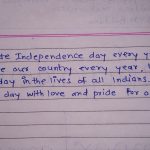 te Independence day every y
e our country every year.
day in the lives of all Indians.
day with love and pride for o